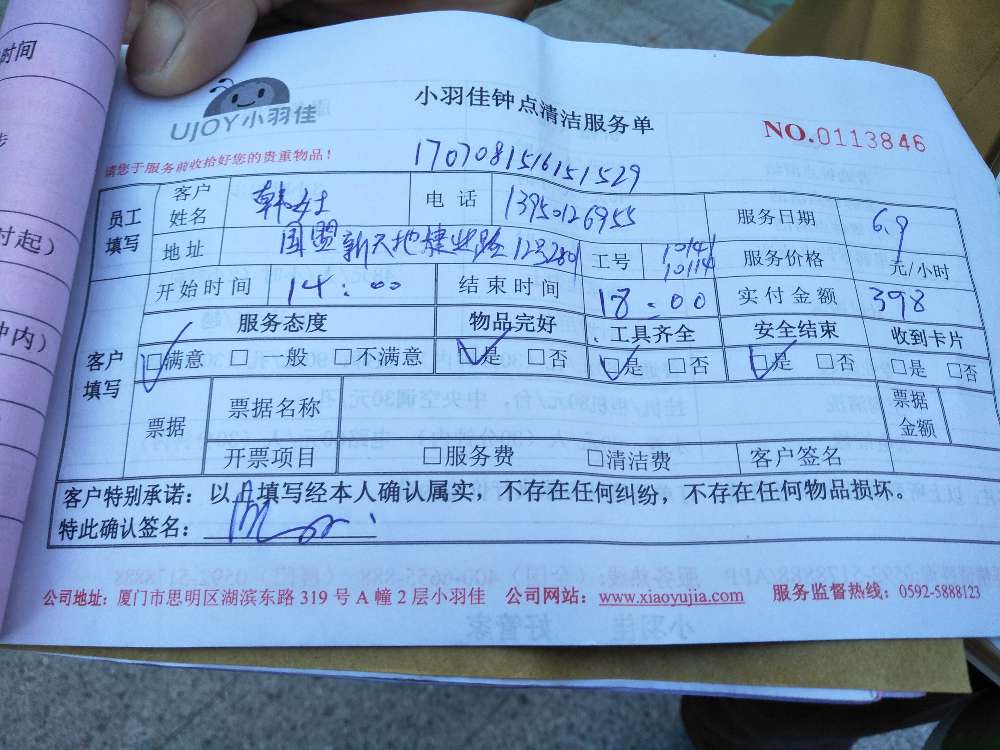 时间
UJOY小羽佳
小羽佳钟点清洁服务单
NO.0113846
请您于服务前收拾好您的贵重物品!
1707081516151529
员工填写 客户姓名 韩女士 电话 13950126955 服务日期 6.9
地址 国盟新天地肆业路12号2801 工号 10141 10114 服务价格 元/小时
开始时间 14:00 结束时间 18:00 实付金额 398
客户填写 服务态度 物品完好 工具齐全 安全结束 收到卡片
☑满意 □一般 □不满意 ☑是 □否 ☑是 □否 ☑是 □否 □是 □否
票据 票据名称 票据金额
开票项目 □服务费 □清洁费 客户签名
客户特别承诺：以上填写经本人确认属实，不存在任何纠纷，不存在任何物品损坏。
特此确认签名：
公司地址：厦门市思明区湖滨东路 319 号 A 幢 2 层小羽佳 公司网站：www.xiaoyujia.com 服务监督热线：0592-5888123